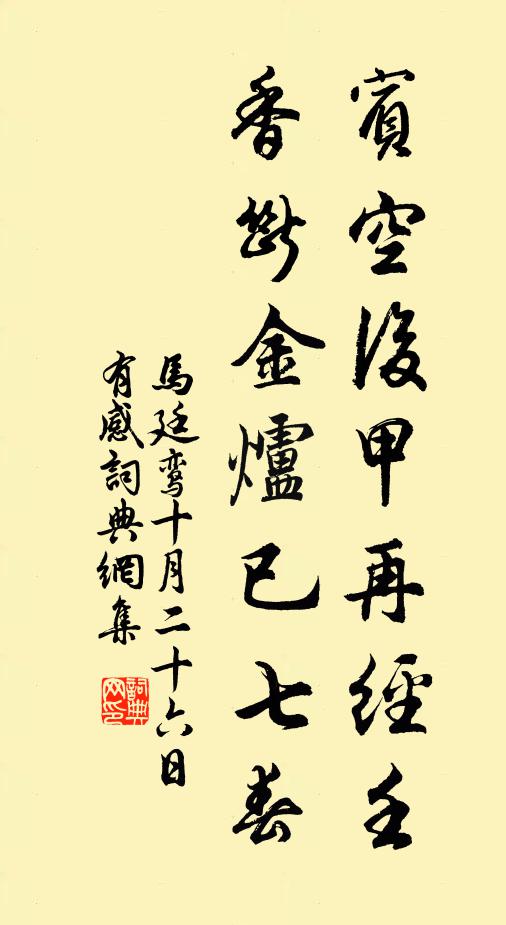 賓空後甲再經壬
香斷金爐已七春
馬廷鸞十月二十六日
有感詞典網集
詞典
网印